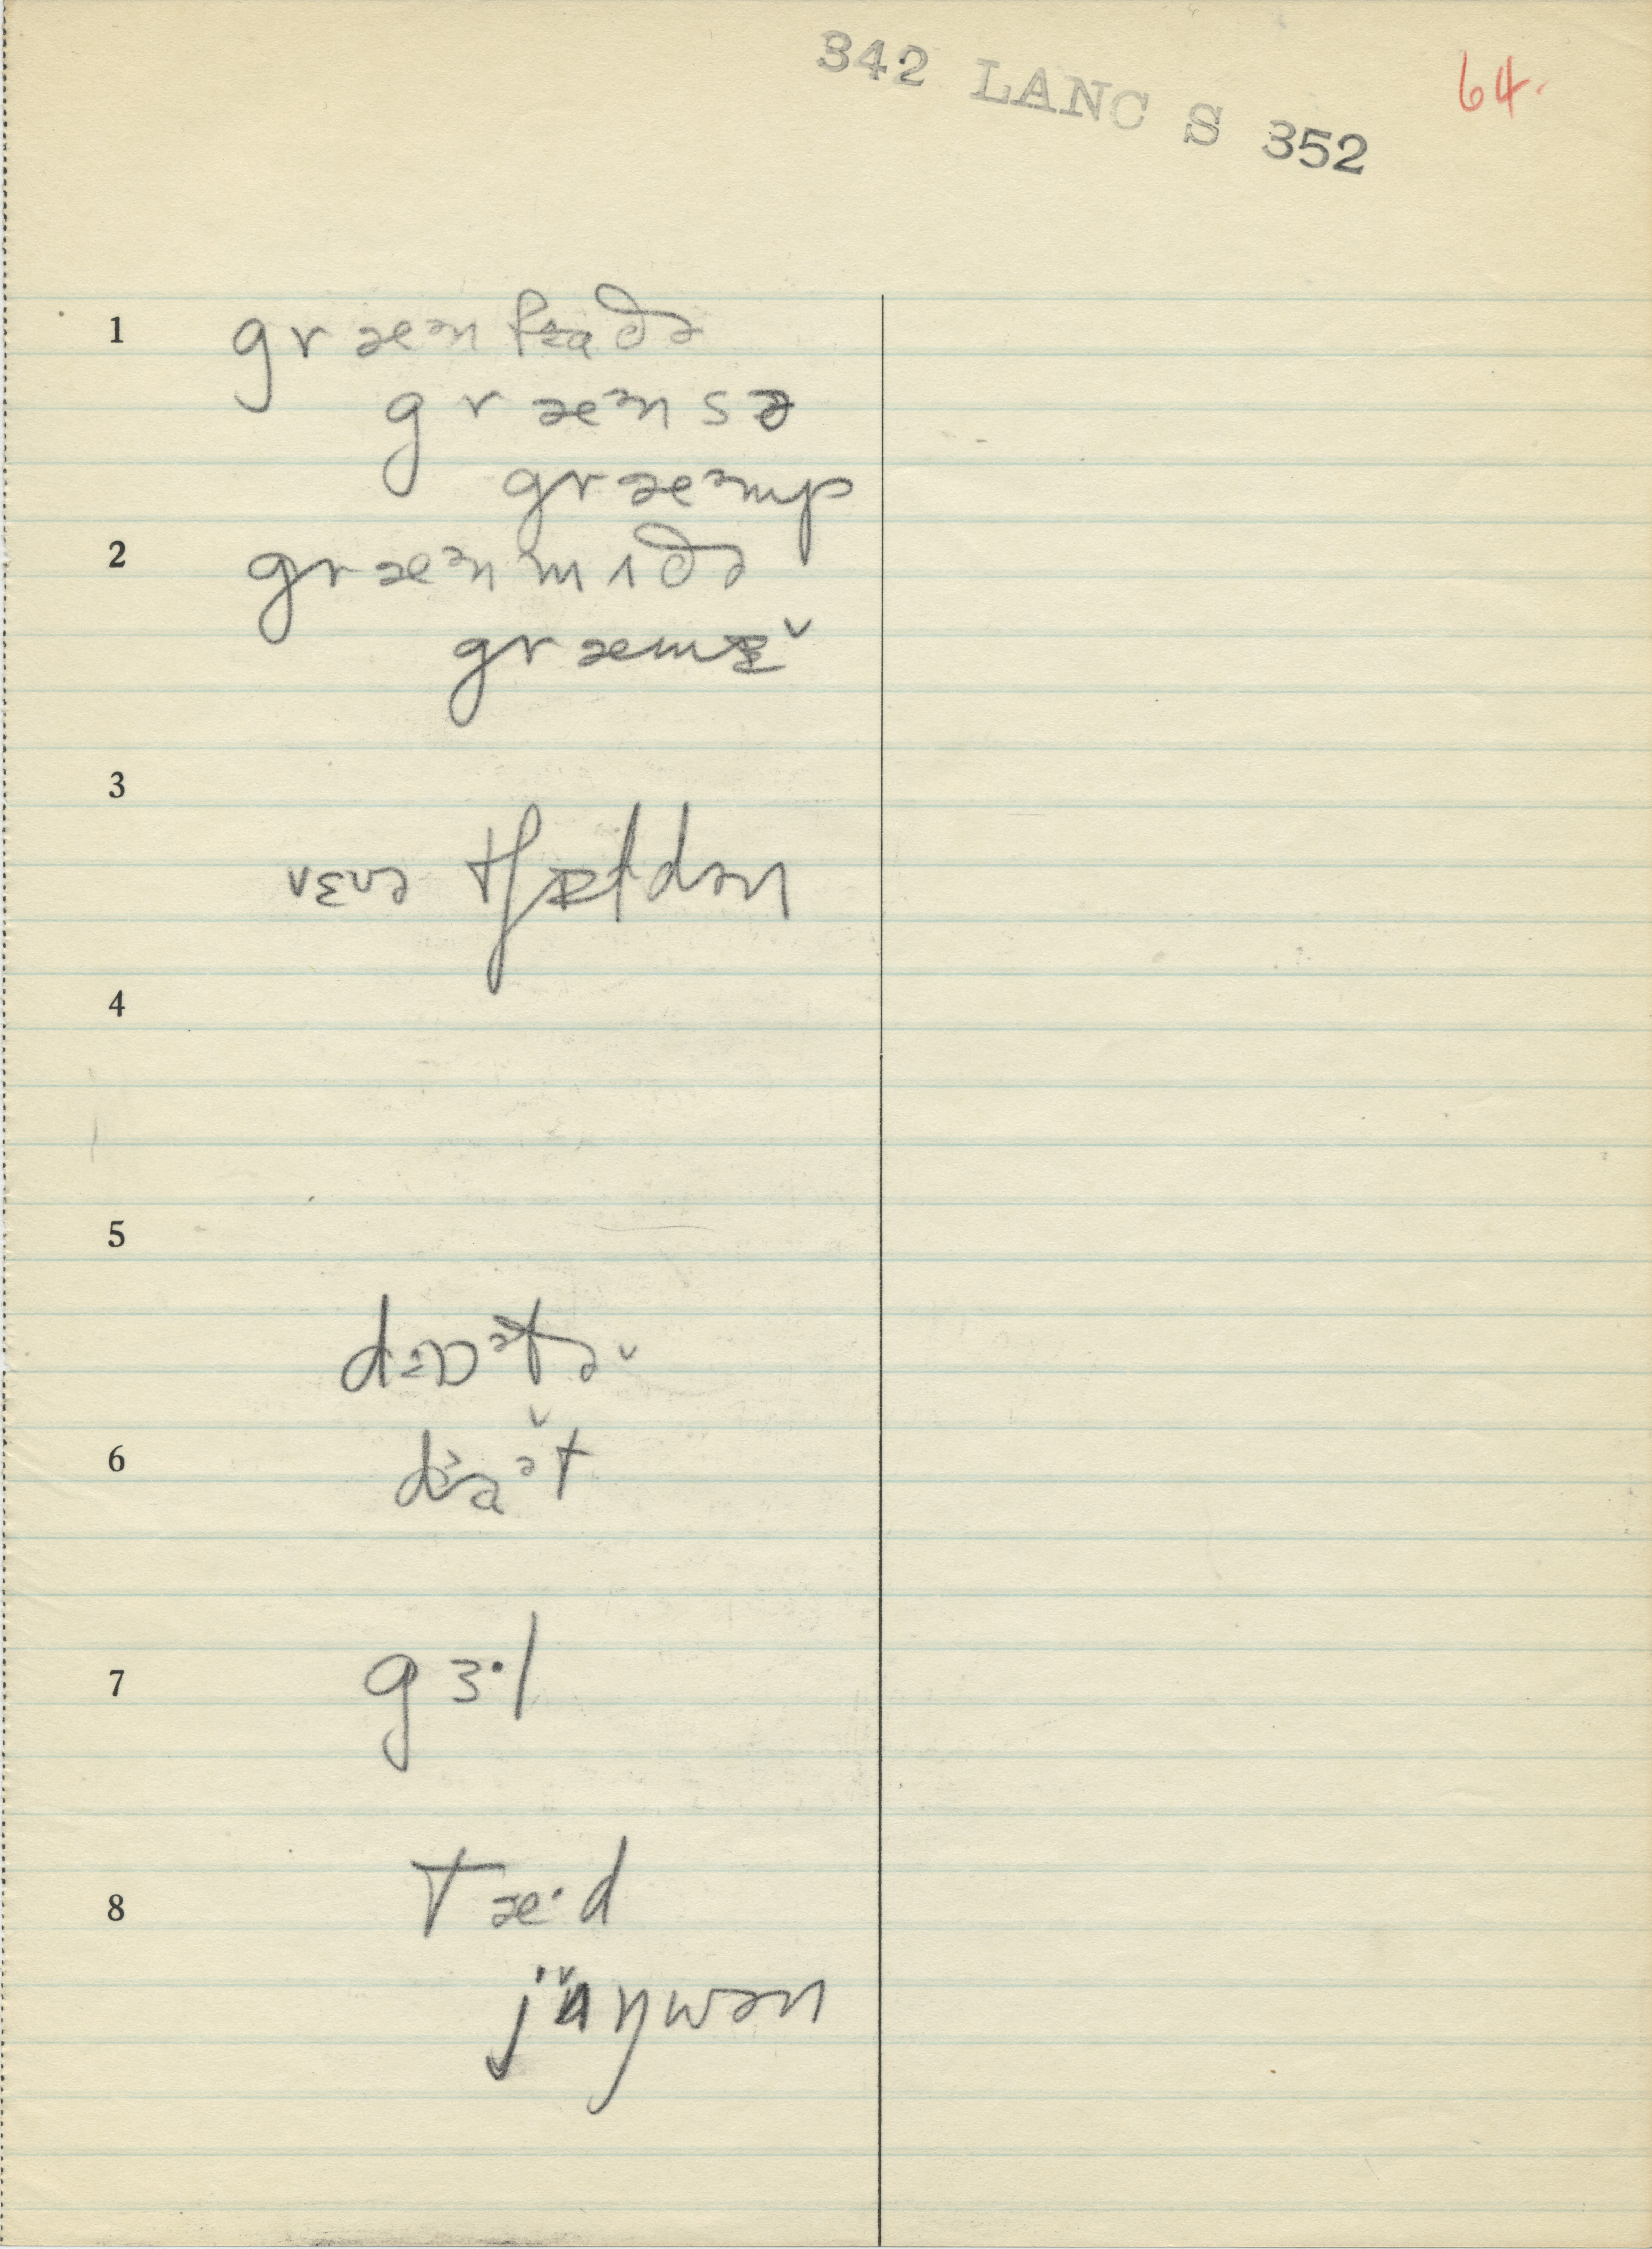 342 LANC S 352
64.
1 græᵊnfɑðə
græᵊnsə
græᵊmp
2 græᵊnmʌðə
græmɛ̌
3
nɛvə tʃɪldən
4
5
dɔɒᵊtə˅
6 dɔɑᵊt
7 gɜ·l
8 Tæ·d
jʌŋwən